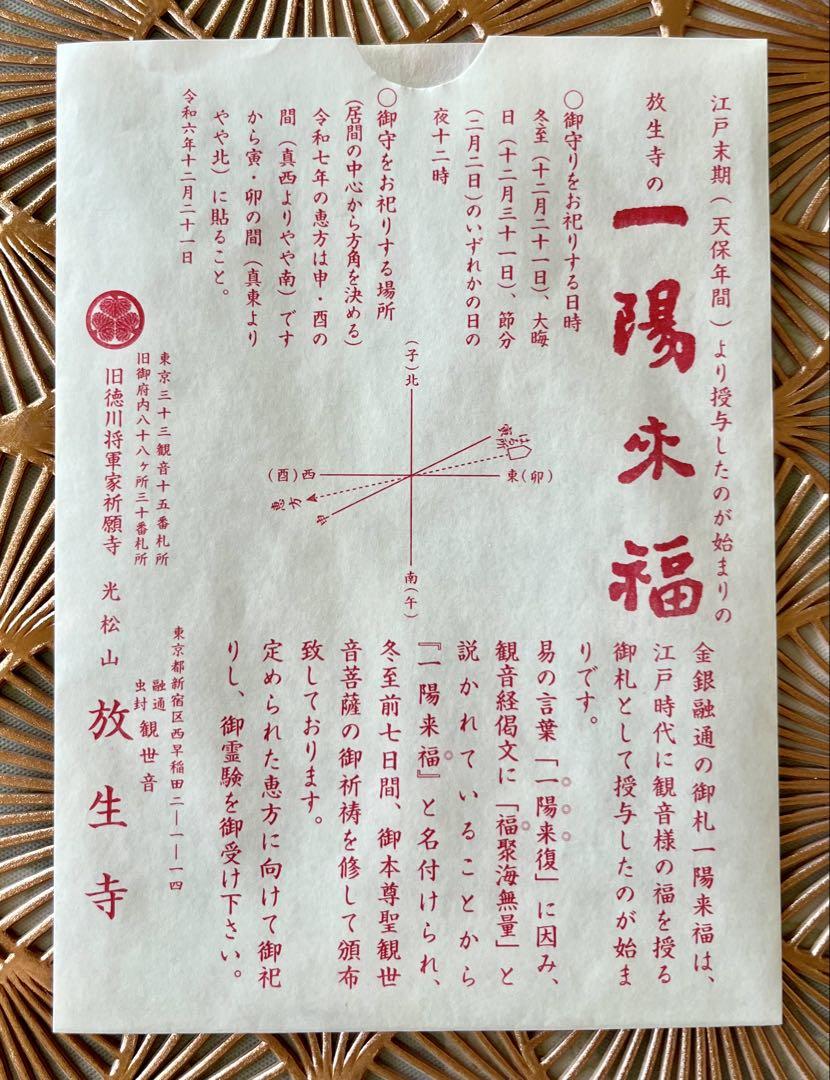 江戸末期(天保年間)より授与したのが始まりの
放生寺の
一陽来福
○御守りをお祀りする日時
冬至(十二月二十一日)、大晦
日(十二月三十一日)、節分
(二月二日)のいずれかの日の
夜十二時
○御守をお祀りする場所
(居間の中心から方角を決める)
令和七年の恵方は申・酉の
間(真西よりやや南)です
から寅・卯の間(真東より
やや北)に貼ること。
令和六年十二月二十一日
(子)北
寅
東(卯)
(酉)西
恵方
申
南(午)
金銀融通の御札一陽来福は、
江戸時代に観音様の福を授る
御札として授与したのが始ま
りです。
易の言葉「一陽来復」に因み、
観音経偈文に「福聚海無量」と
説かれていることから
『一陽来福』と名付けられ、
冬至前七日間、御本尊聖観世
音菩薩の御祈祷を修して頒布
致しております。
定められた恵方に向けて御祀
りし、御霊験を御受け下さい。
東京三十三観音十五番札所
旧御府内八十八ヶ所三十番札所
旧徳川将軍家祈願寺 光松山 放生寺
東京都新宿区西早稲田二―一―一四
融通
虫封
観世音